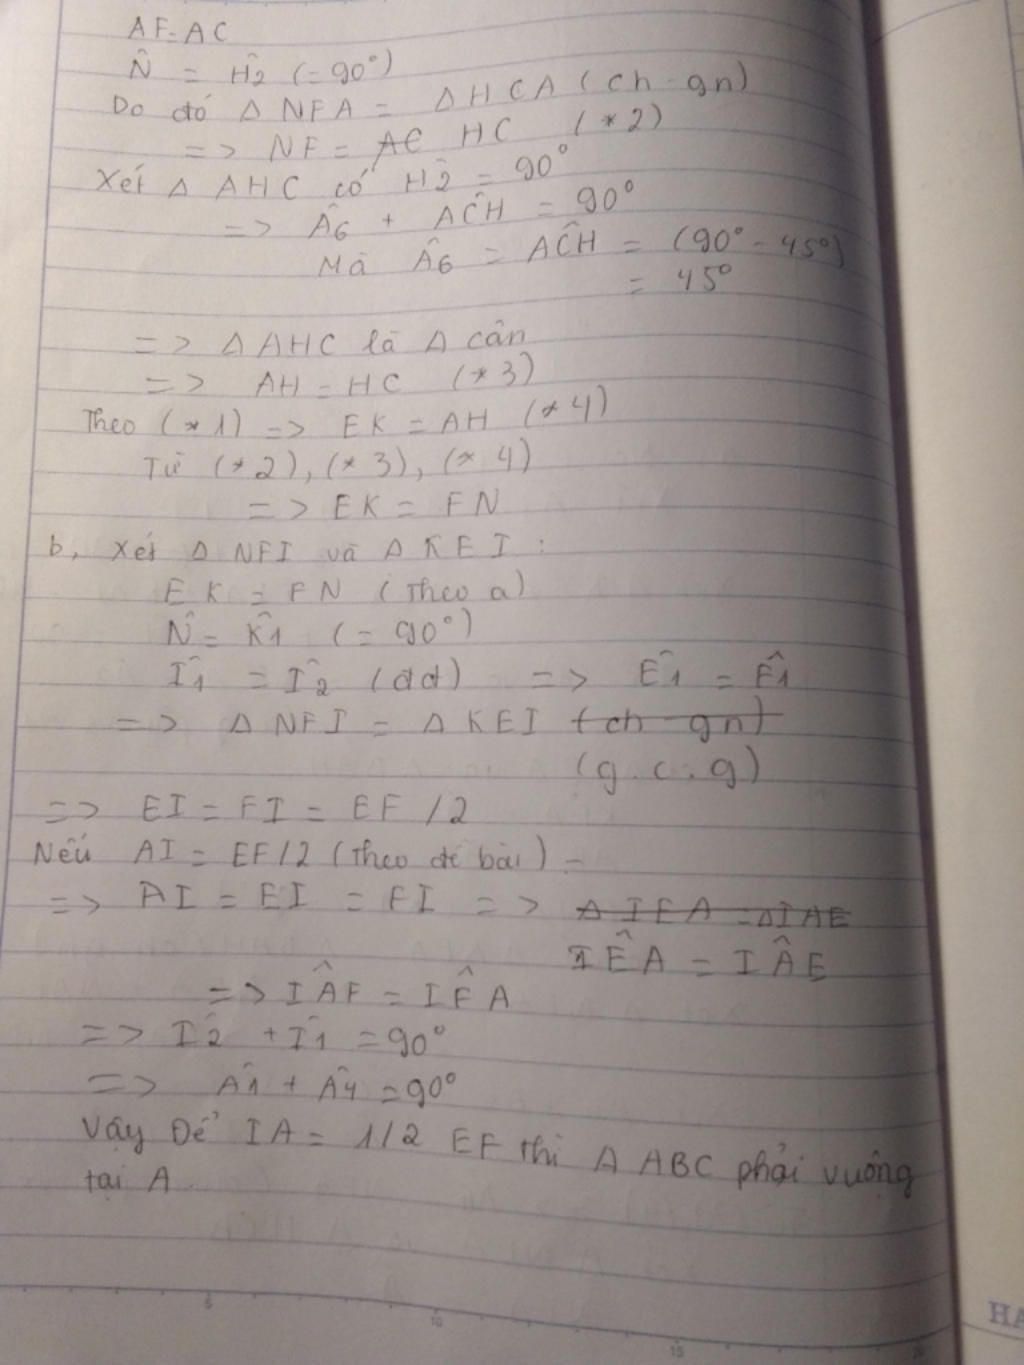 AF = AC
N̂ = Ĥ2 (= 90°)
Do đó Δ NFA = Δ HCA (ch - gn)
=> NF = HC (*2)
Xét Δ AHC có Ĥ2 = 90°
=> Â6 + AĈH = 90°
Mà Â6 = AĈH = (90° - 45°)
= 45°
=> Δ AHC là Δ cân
=> AH = HC (*3)
Theo (*1) => EK = AH (*4)
Từ (*2), (*3), (*4)
=> EK = FN
b, Xét Δ NFI và Δ KEI :
EK = FN (Theo a)
N̂ = K̂1 (= 90°)
Î1 = Î2 (dd) => Ê1 = F̂1
=> Δ NFI = Δ KEI (ch - gn)
(g.c.g)
=> EI = FI = EF /2
Nếu AI = EF/2 (Theo đề bài)
=> AI = EI = FI => Δ IEA = Δ IAE
IÊA = IÂE
=> IÂF = IF̂A
=> Î2 + Î1 = 90°
=> Â1 + Â4 = 90°
Vậy Để IA = 1/2 EF thì Δ ABC phải vuông
tại A
5
10
15
20
HA